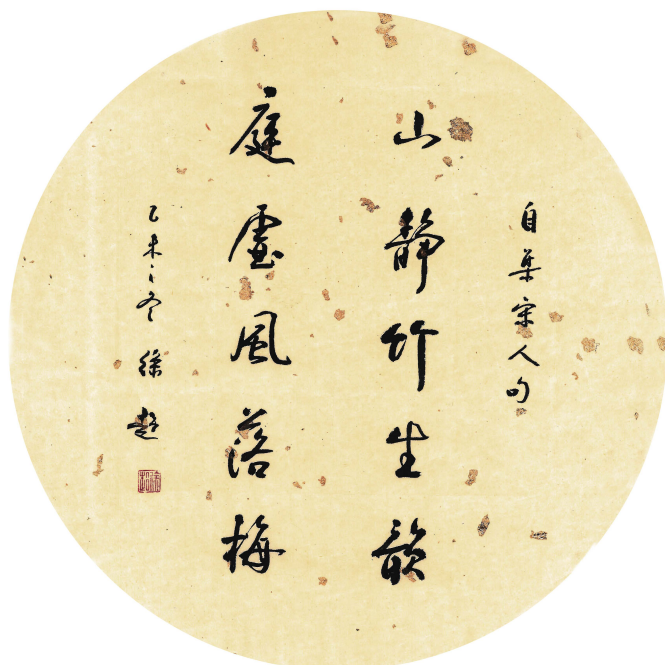 自集宋人句
山静竹生韵
庭虚風落梅
乙未之冬徐超